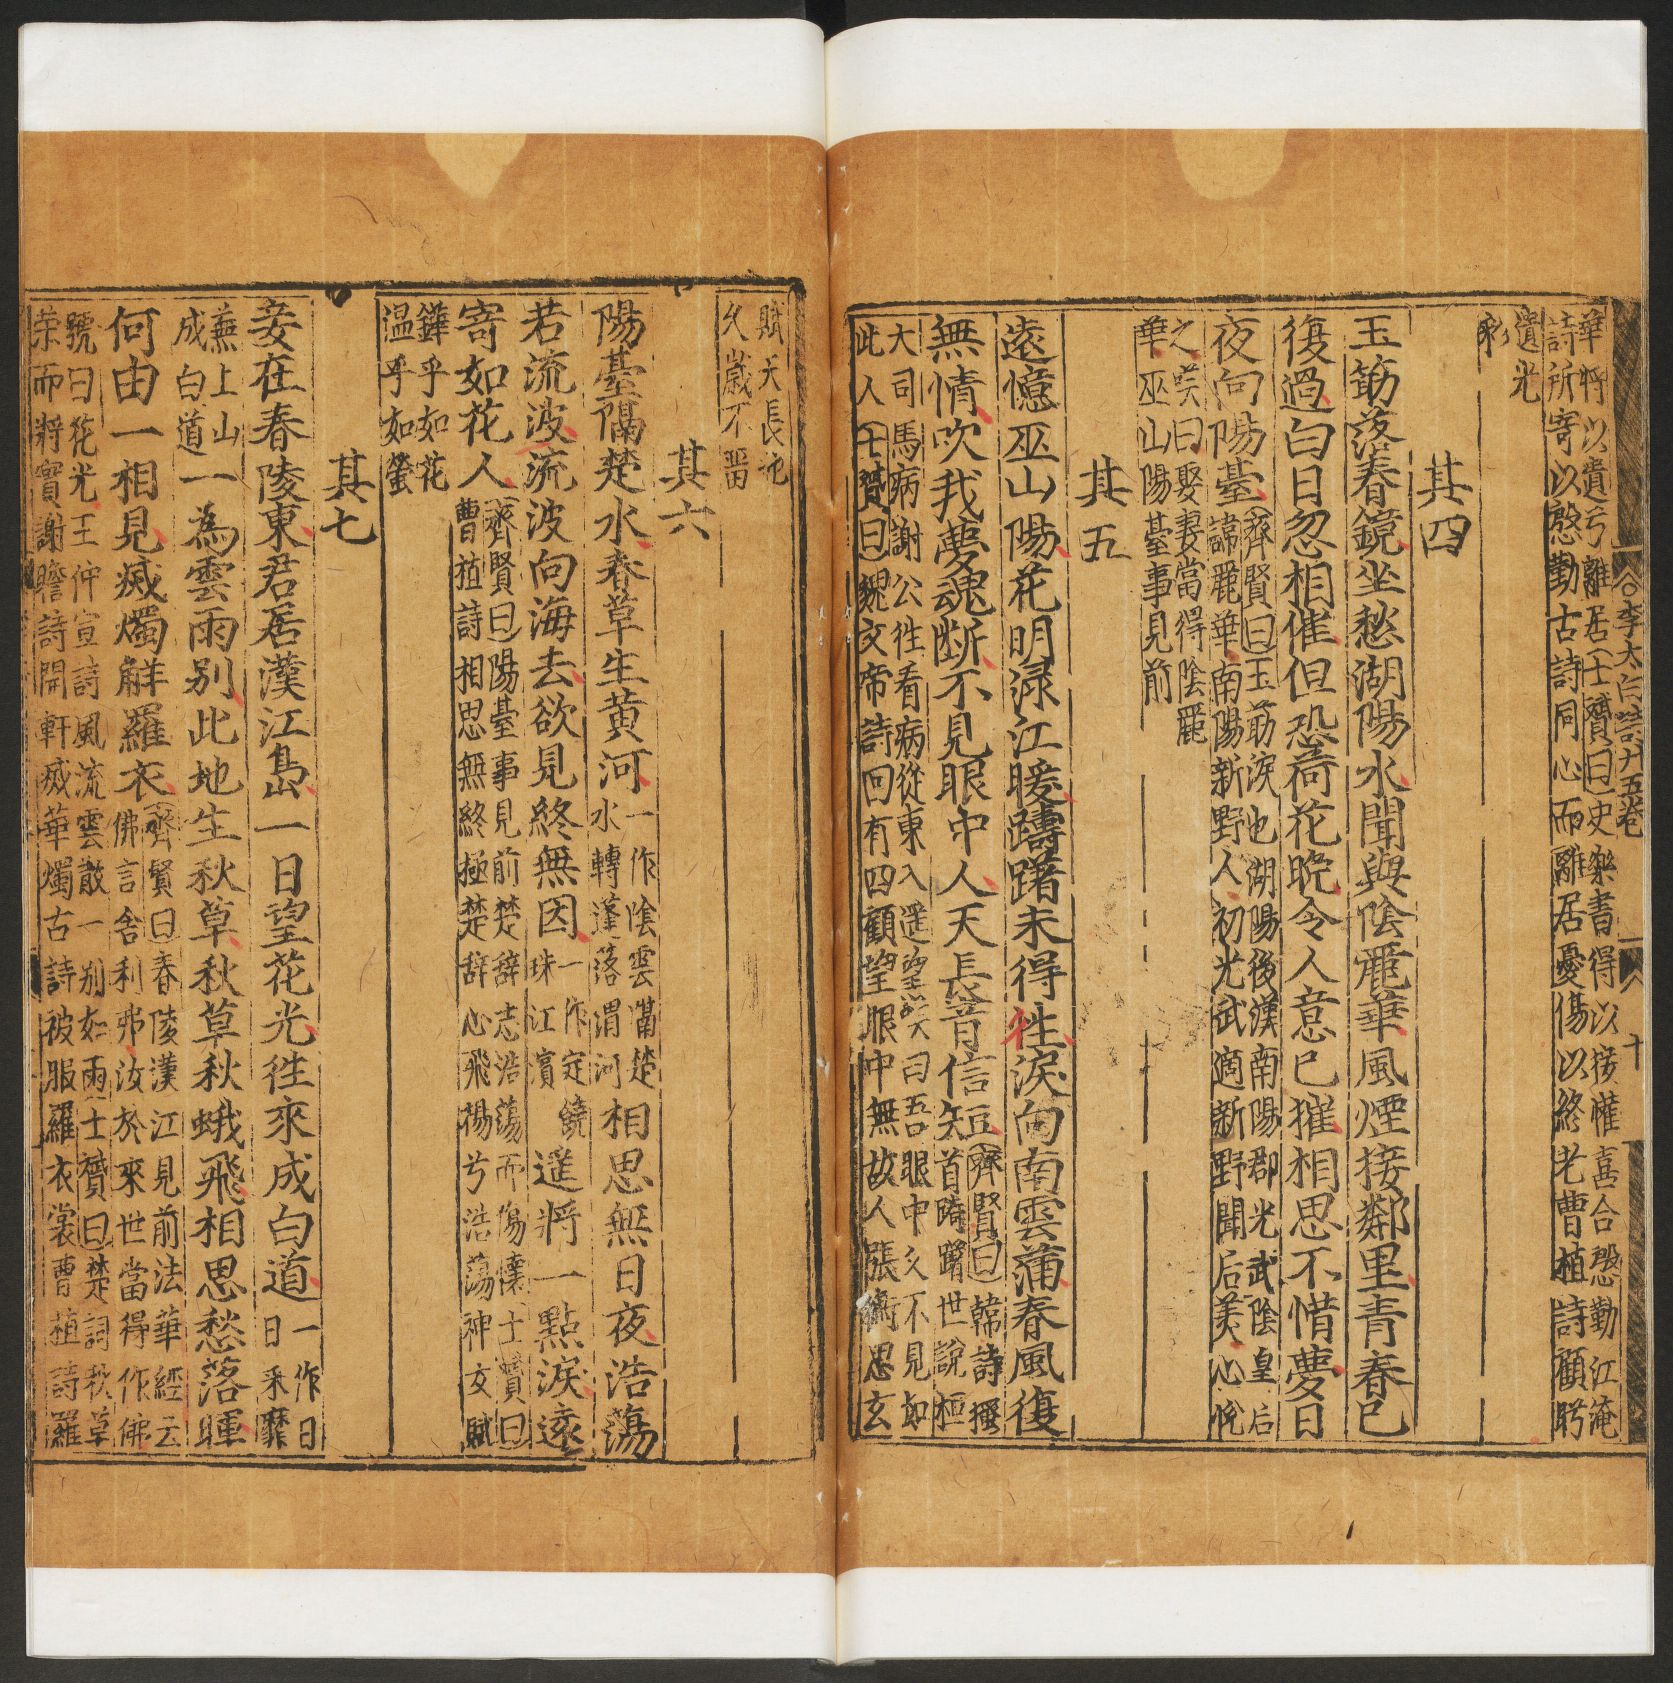 華將以遺兮離居士贇曰史樂書得以接懽喜合慇勤江淹
詩所寄以慇勤古詩同心而離居憂傷以終老曹植詩顧眄
遺光
彩
其四
玉筯落春鏡坐愁湖陽水聞與陰麗華風煙接鄰里青春已
復過白日忽相催但恐荷花晚令人意已摧相思不惜夢日
夜向陽臺
齊賢曰玉筯淚也湖陽後漢南陽郡光武陰皇后
諱麗華南陽新野人初光武適新野聞后美心悅
之嘆曰娶妻當得陰麗
華巫山陽臺事見前
其五
遠憶巫山陽花明淥江暖躊躇未得徃淚向南雲蒲春風復
無情吹我夢魂斷不見眼中人天長音信短
齊賢曰韓詩搔
首踟躕世說桓
大司馬病謝公徃看病從東入遥望嘆曰吾眼中久不見如
此人士贇曰魏文帝詩回有四顧望眼中無故人張衡思玄
賦天長地
久歲不畱
其六
陽臺隔楚水春草生黄河
一作陰雲滿楚
水轉蓬落渭河
相思無日夜浩蕩
若流波流波向海去欲見終無因
一作定饒
珠江濵
遥將一點淚遠
寄如花人
齊賢曰陽臺事見前楚辭志浩蕩而傷懷士贇曰
曹植詩相思無終極楚辞心飛揚兮浩蕩神女賦
鏵乎如花
温乎如螢
其七
妾在春陵東君居漢江島一日望花光徃來成白道
一作日
日采蘼
蕪上山
成白道
一為雲雨别此地生秋草秋草秋蛾飛相思愁落暉
何由一相見滅燭解羅衣
齊賢曰春陵漢江見前法華經云
佛言舍利弗汝於來世當得作佛
號曰花光王仲宣詩風流雲散一别如雨士贇曰楚詞秋草
荣而將實謝瞻詩開軒滅華燭古詩被服羅衣裳曹植詩羅
李太白詩廿五卷
十